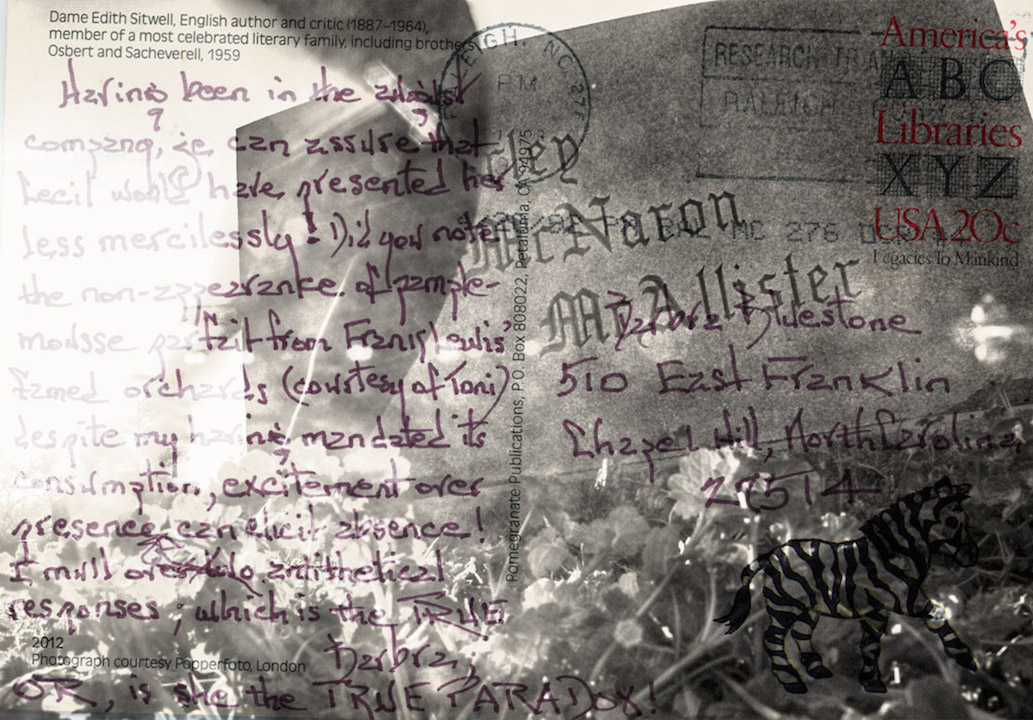 Dame Edith Sitwell, English author and critic (1887–1964),
member of a most celebrated literary family, including brothers
Osbert and Sacheverell, 1959
Having been in the
company, can assure that
Cecil would have presented her
less mercilessly! Did you note
the non-appearance of pample-
mousse parfait from
famed orchards (courtesy of Toni)
despite my having mandated its
consumption, excitement over
presence can elicit absence!
I mull antithetical
responses; which is the TRUE
Barbra,
OR, is she the TRUE PARADOX!
2012
Photograph courtesy Popperfoto, London
Pomegranate Publications, P.O. Box 808022, Petaluma, CA 94975
GH, NC 27
PM
RESEARCH TRIAN
RALEIGH
America's
ABC
Libraries
XYZ
USA 20c
Legacies To Mankind
ley
McNaron
McAllister
Barbra Bluestone
510 East Franklin
Chapel Hill, North Carolina
27514